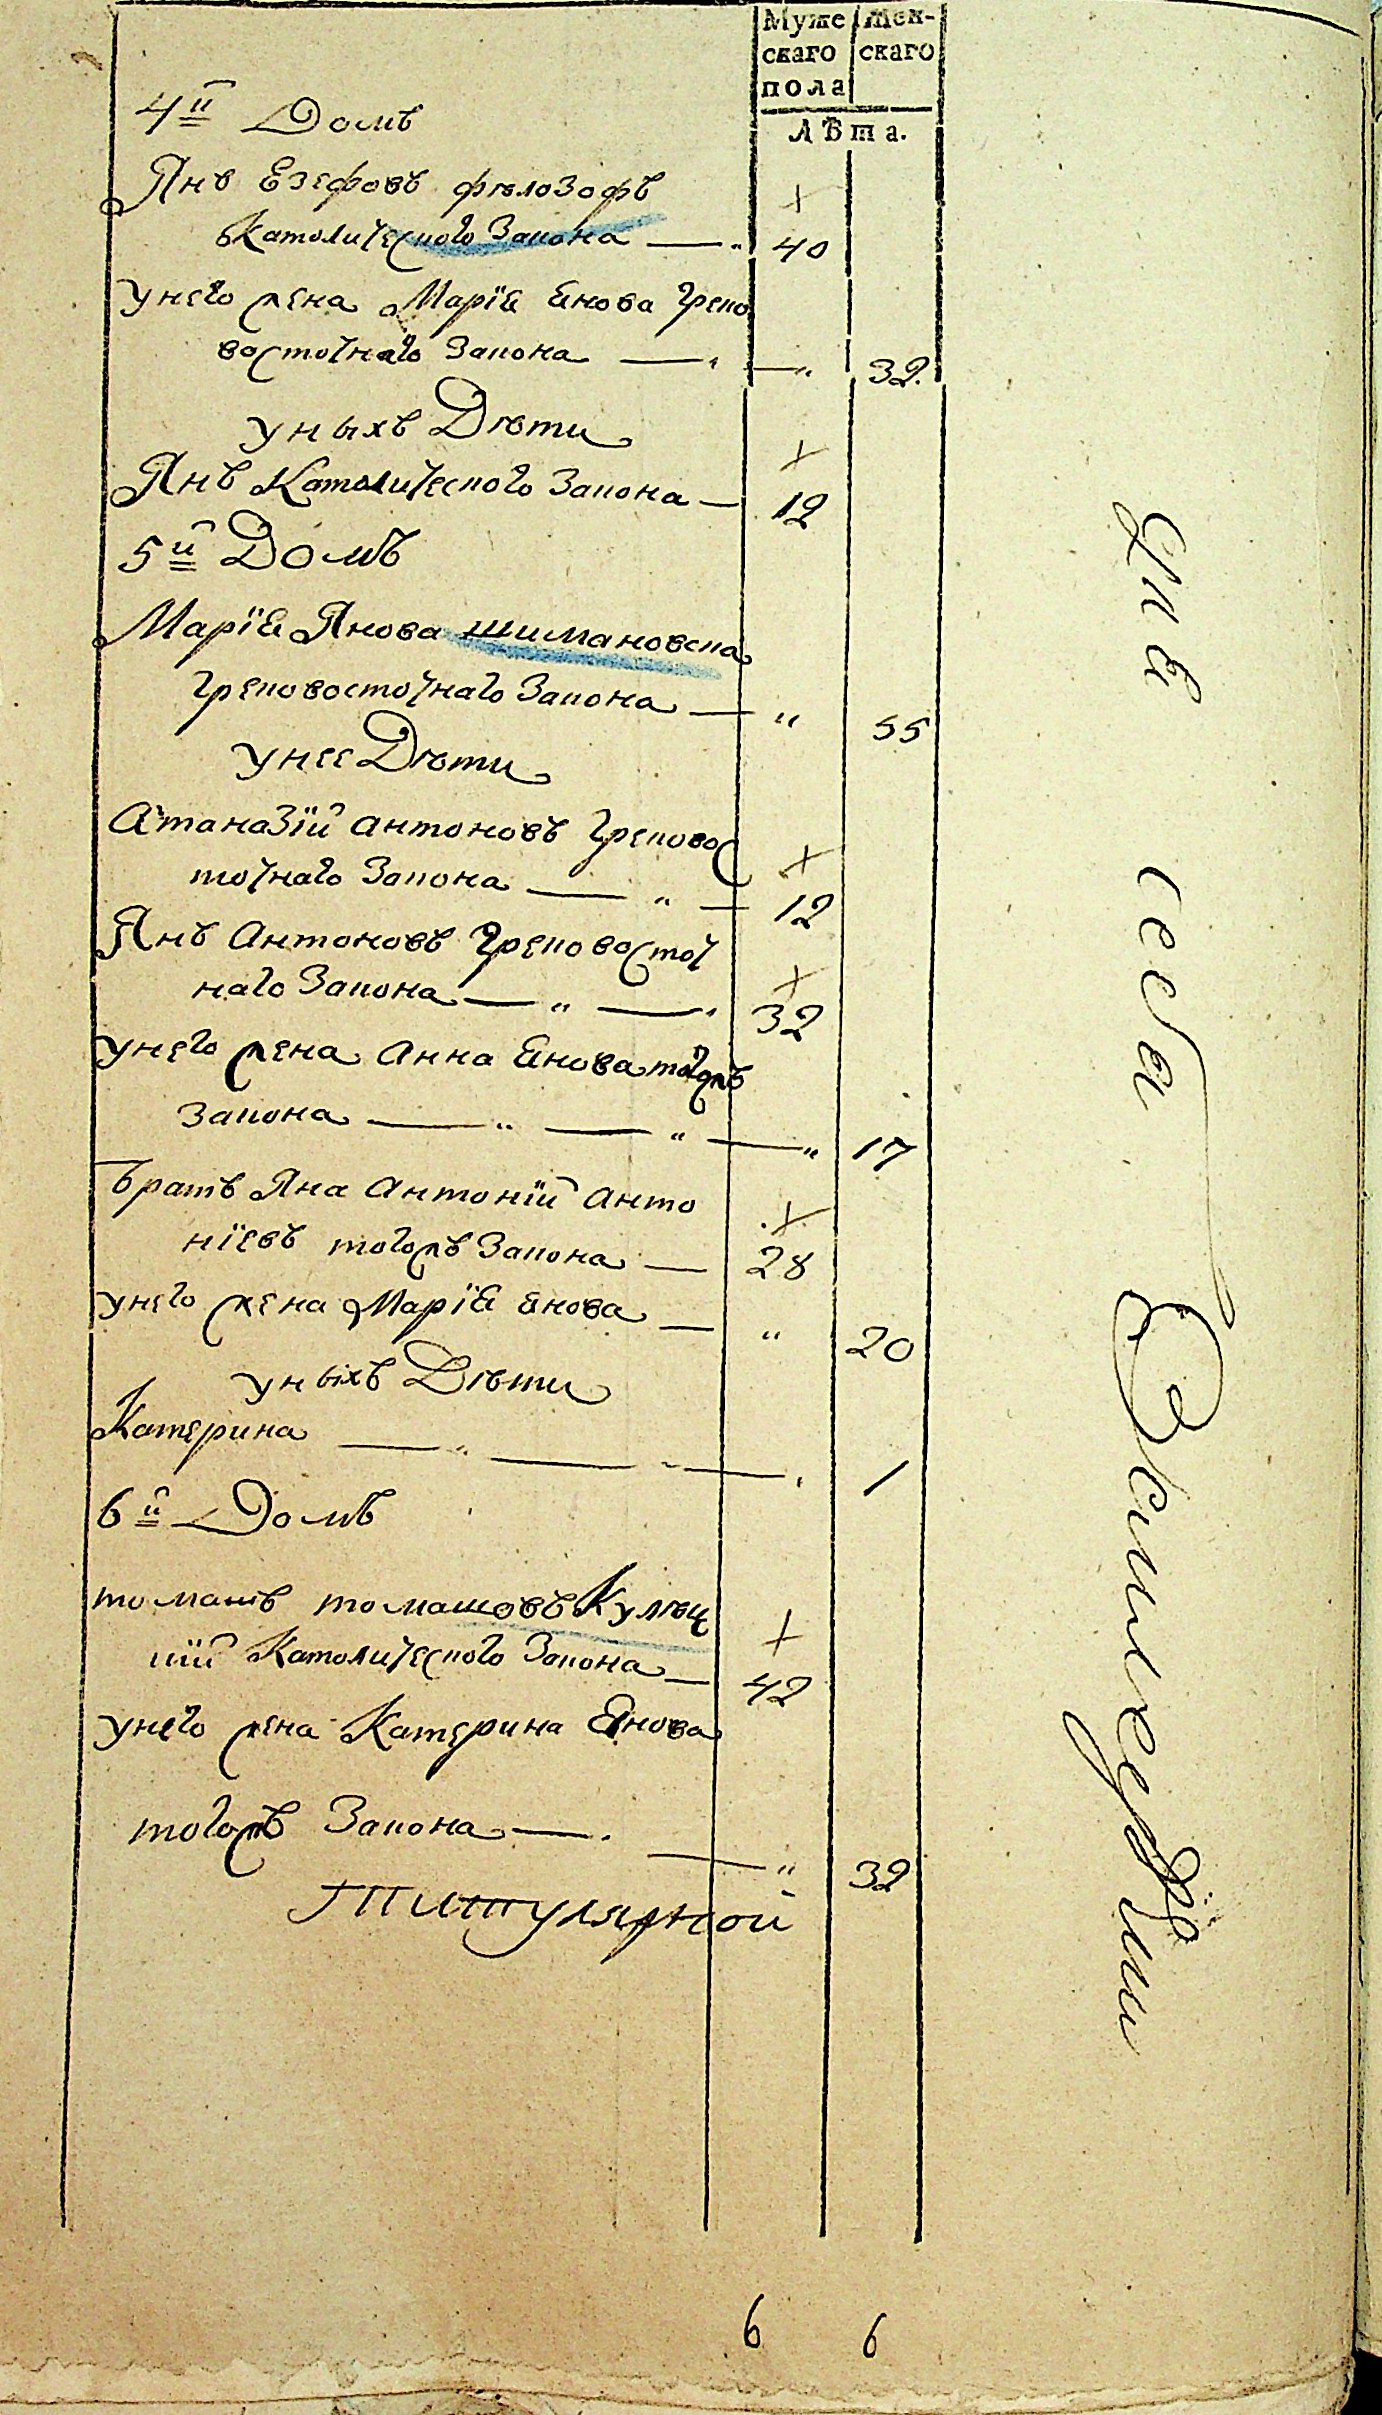 Муже Жен-
скаго скаго
пола
Лѣта.
4й Домъ
Янъ Езефовъ филозофъ
Католического Закона — 40
унего жена Марiя Янова Греко
восточнаго Закона — " — " 32
уныхъ Дѣти
Янъ Католического Закона — 12
5й Домъ
Марiя Янова шимановска
Грековосточнаго Закона — " 55
унее Дѣти
Атаназiй антоновъ Грековос
точнаго Закона — " — 12
Янъ Антоновъ Грековосточ
наго Закона — " — " 32
унего жена Анна Янова тогожъ
Закона — " — " — " 17
братъ Яна Антонiй Анто
нiевъ тогожъ Закона — 28
унего жена Марiя Янова — " 20
уныхъ Дѣти
Катерина — " — " — " 1
6й Домъ
томашъ томашовъ Кулѣц
кiй Католического Закона — 42
унего жена Катерина Янова
тогожъ Закона — " — " 32
Титулярной
6 6